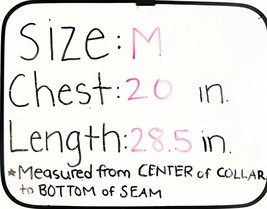 Size: M
Chest: 20 in.
Length: 28.5 in.
*Measured from CENTER of COLLAR
to BOTTOM of SEAM